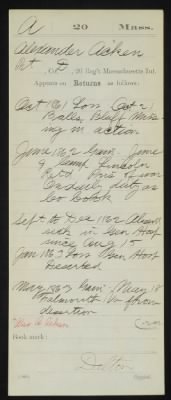 A 20 Mass.
Alexander Aiken
Pvt, Co. D, 20 Reg't Massachusetts Inf.
Appears on Returns as follows:
Oct 1861 Loss Oct 21
Balls Bluff Miss
ing in action
June 1862 Gain June
9 Camp Lincoln
Ret'd Pris of war
Co Cook
Sept to Dec 1862 Absent
sick in Gen Hosp
since Aug 15
Jan 1863 Loss Gen Hosp
Deserted
May 1863 Gain May 18
Falmouth Va from
desertion
Book mark: